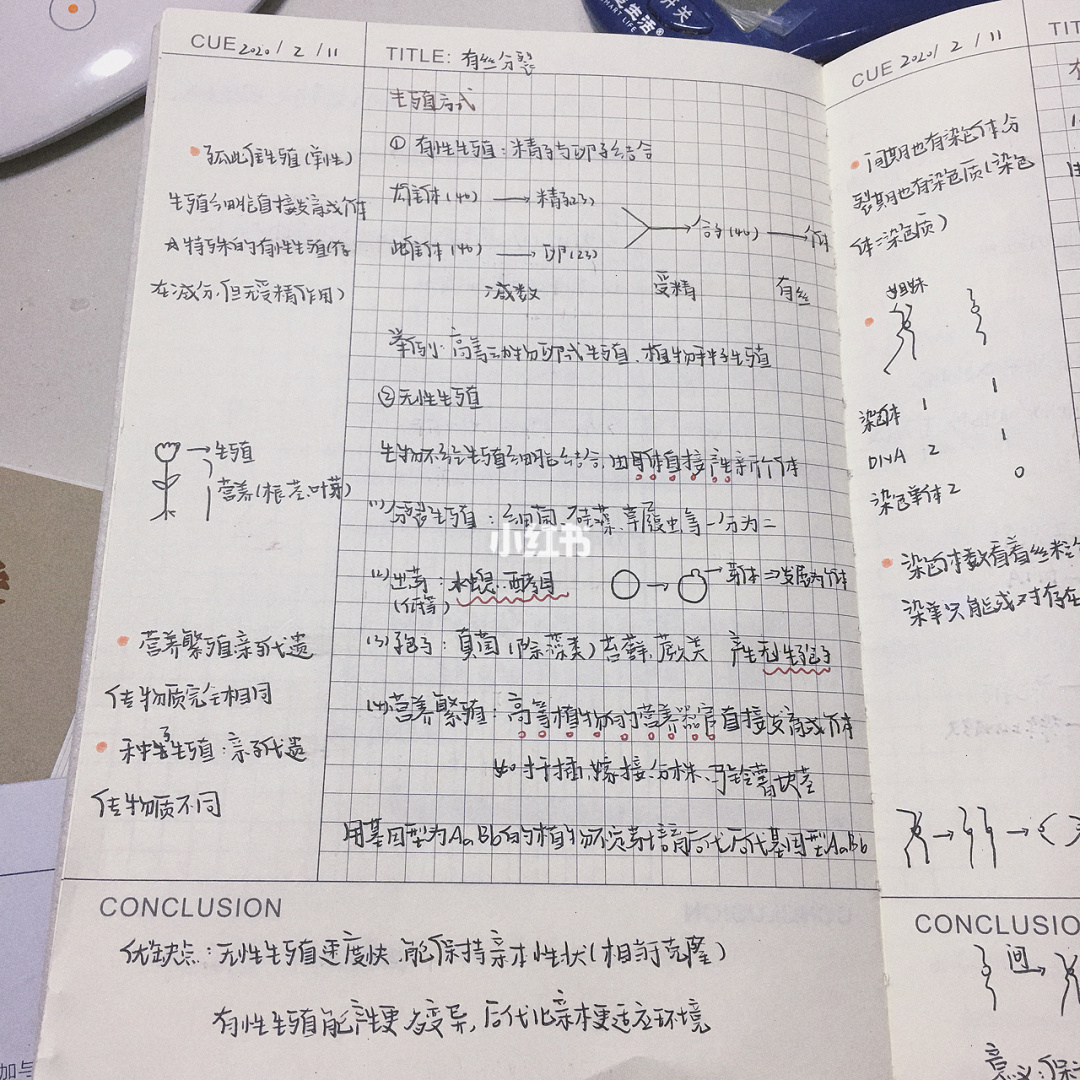 生活®
开关
SMART LIFE
CUE 2020/2/11
TITLE: 有丝分裂
孤雌生殖(单性)
生殖细胞直接发育成个体
特殊的有性生殖(存
在减分,但无受精作用)
→生殖
营养(根、茎、叶、芽)
营养繁殖亲子代遗
传物质完全相同
种子生殖:亲子代遗
传物质不同
生殖方式
①有性生殖:精子与卵子结合
雄体(46) → 精(23)
合子(46) → 个体
雌体(46) → 卵(23)
减数 受精 有丝
举例:高等动物卵式生殖、植物种子生殖
②无性生殖
生物不经生殖细胞结合,由母体直接产生新个体
(1)分裂生殖:细菌、硅藻、草履虫等 一分为二
(2)出芽:水螅、酵母
→芽体⇒发展为个体
(3)孢子:真菌(除藻类)苔藓、蕨类 产生无性孢子
(4)营养繁殖:高等植物的营养器官直接发育成个体
如扦插、嫁接、分株、马铃薯块茎
用基因型为AaBb的植物不定芽培育后代后代基因型AaBb
CONCLUSION
优缺点:无性生殖速度快、能保持亲本性状(相当于克隆)
有性生殖能产生更多变异,后代比亲本更适应环境
小红书
CUE 2020/2/11
间期也有染色体分
裂期也有染色质(染色
体=染色质)
姐妹
染色体 1 1
DNA 2 1
染色单体 2 0
染色体数看着丝粒
染单只能成对存在
CONCLUSIO
间
意义:保
加与